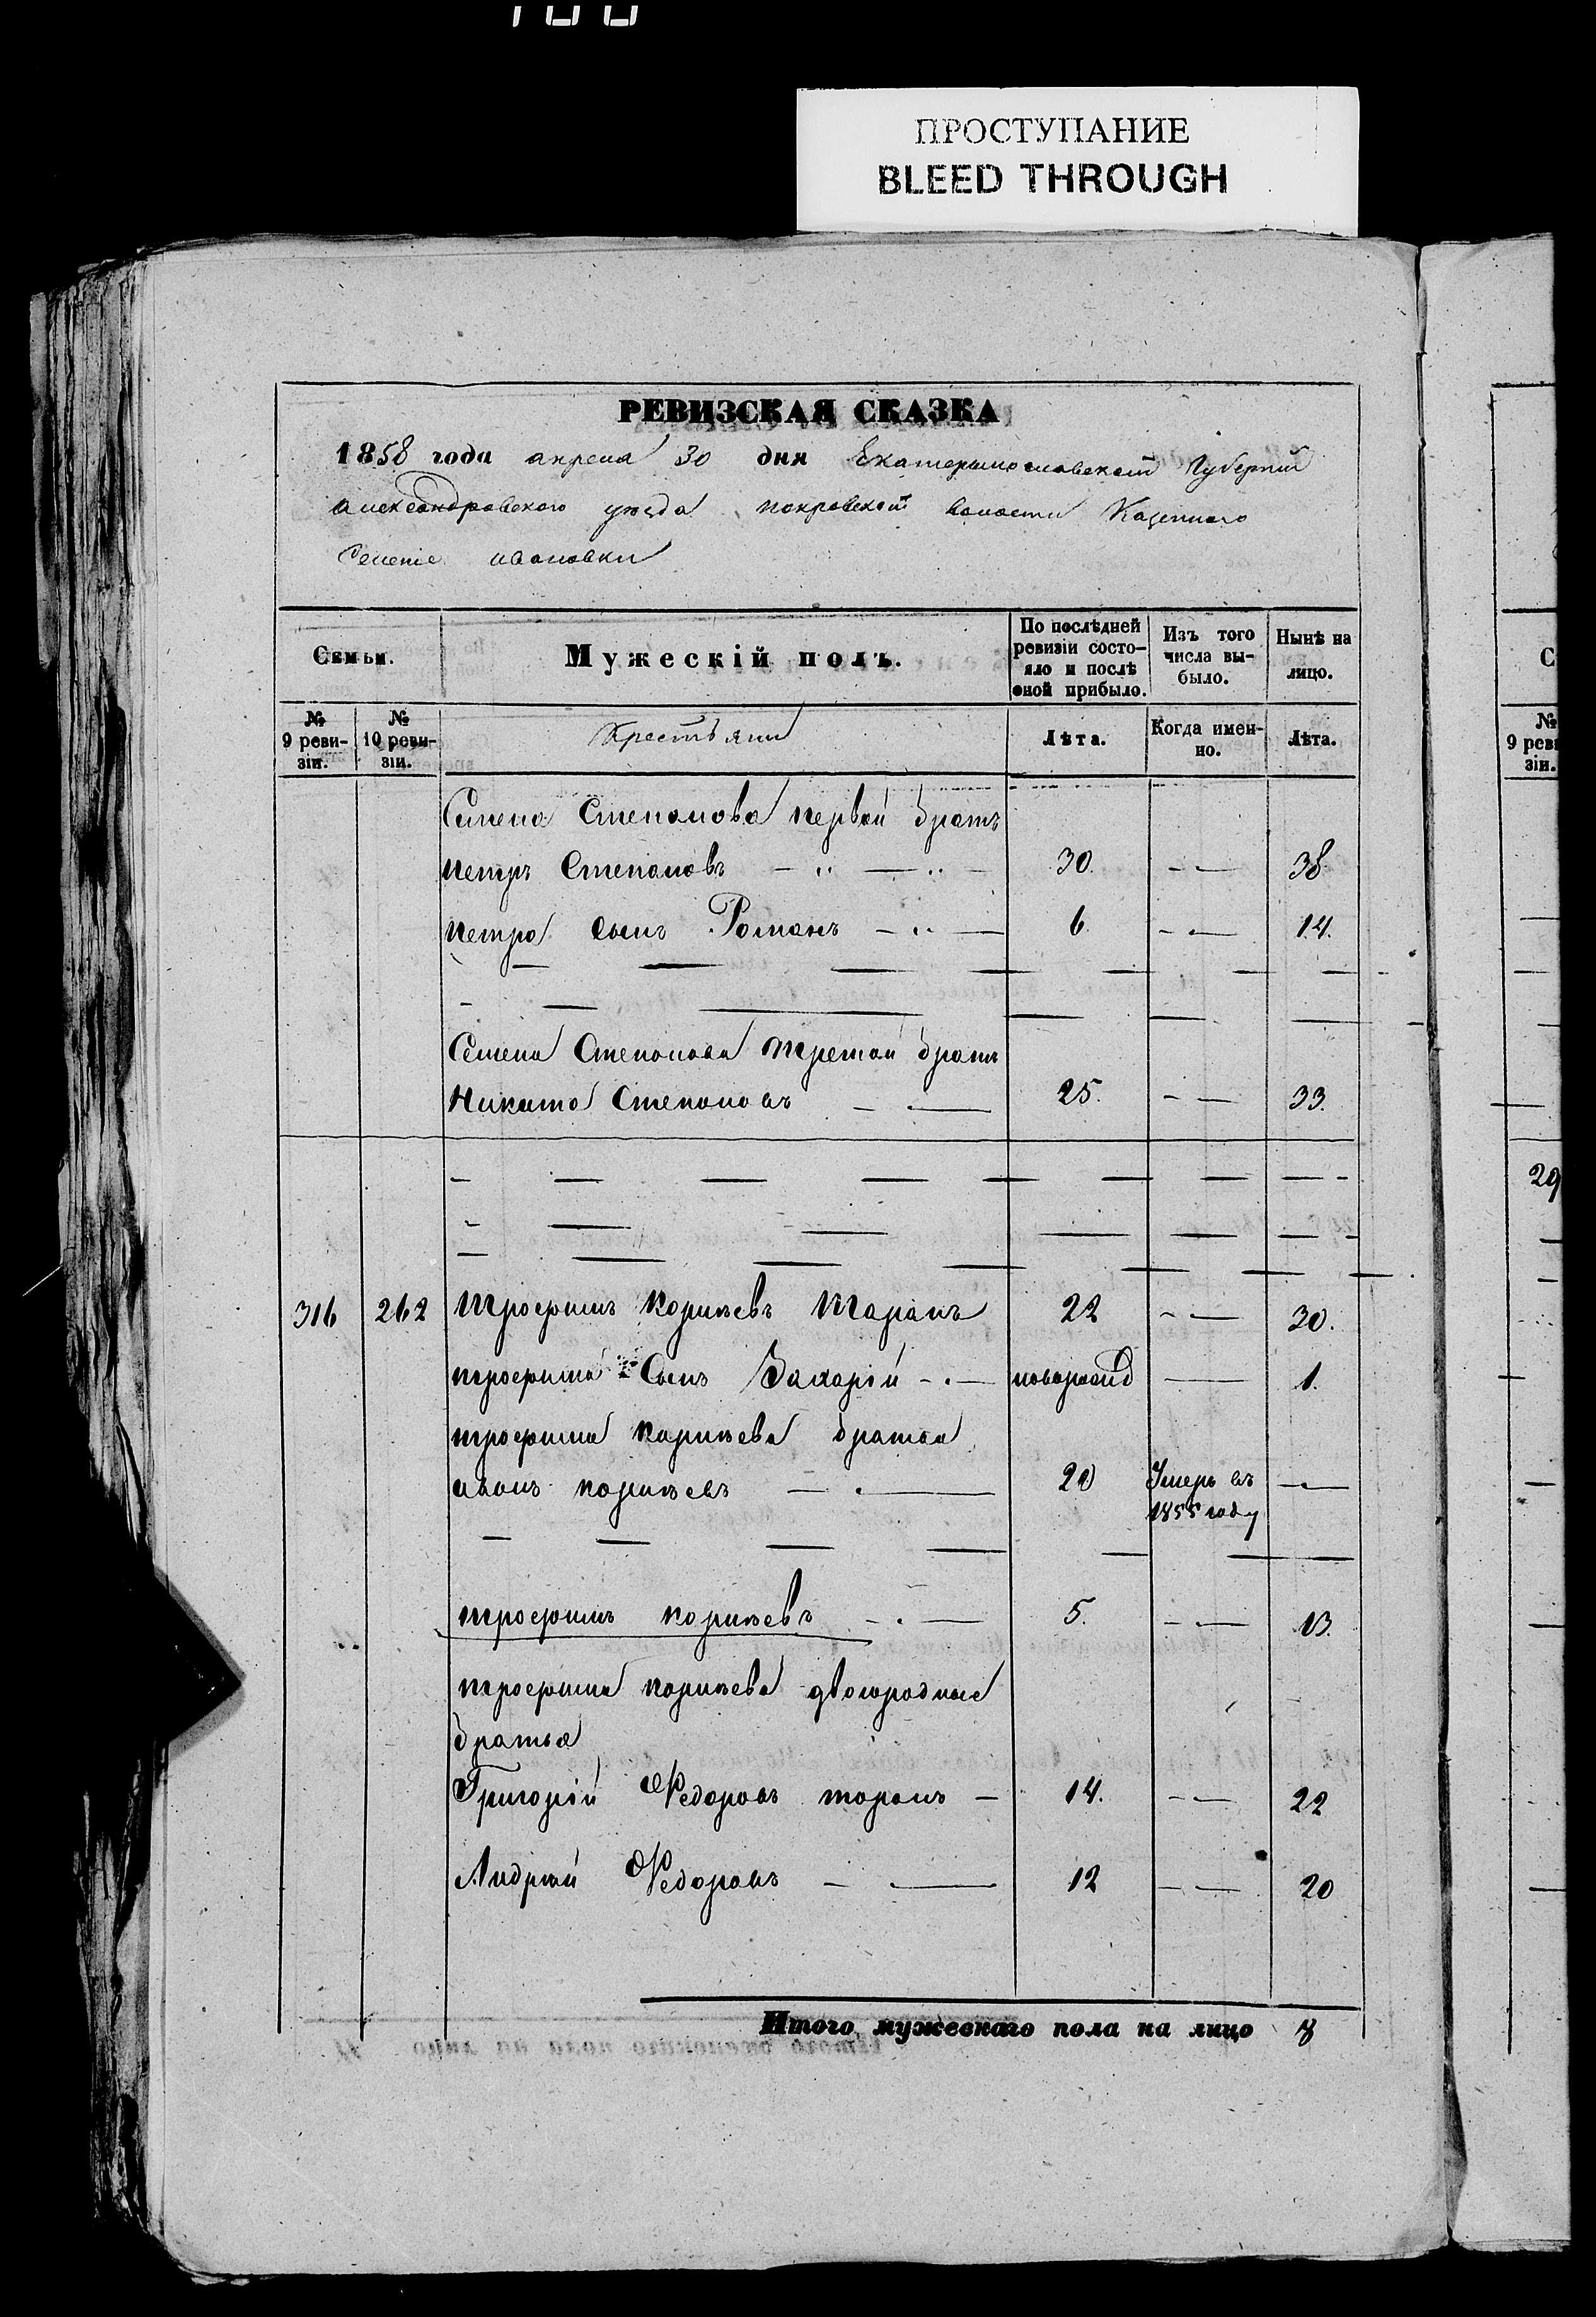 ПРОСТУПАНИЕ
BLEED THROUGH
РЕВИЗСКАЯ СКАЗКА
1858 года апреля 30 дня Екатеринославской Губернии
Александровского уезда покровской волости Казенного
Селение ивановки
Семьи.
Мужескій полъ.
По послѣдней ревизіи состо-
яло и послѣ
оной прибыло.
Изъ того
числа вы-
было.
Нынѣ на
лицо.
№
9 реви-
зіи.
№
10 реви-
зіи.
Крестьяни
Лѣта.
Когда имен-
но.
Лѣта.
Семена Степанова первой братъ
петръ Степановъ 30. 38
петра сынъ Романъ 6 14.
Семена Степанова третой братъ
Никита Степановъ 25. 33.
316 262 трофимъ корнѣевъ таранъ 22 30.
трофима Сынъ Захарій новорожд 1.
трофима корнѣева братья
иванъ корнѣевъ 20 Умеръ въ
1855 году
трофимъ корнѣевъ 5. 13.
трофима корнѣева двоюродные
братья
Григорій Федоровъ таранъ 14. 22
Андрей Федоровъ 12 20
Итого мужескаго пола на лицо 8
С
№
9 реви
зіи.
29